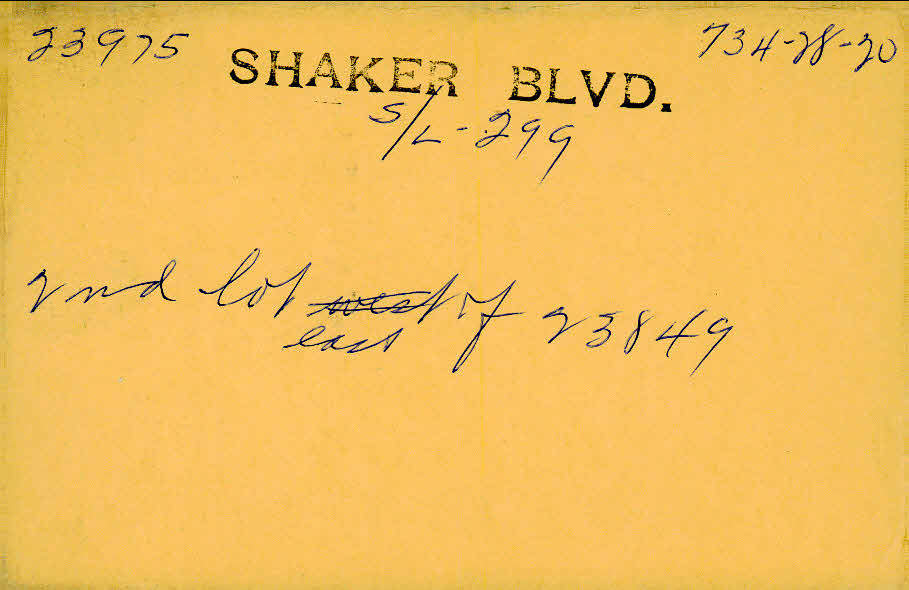 23975 SHAKER BLVD. 734-28-20
S/L-299
2nd lot west of 23849
east